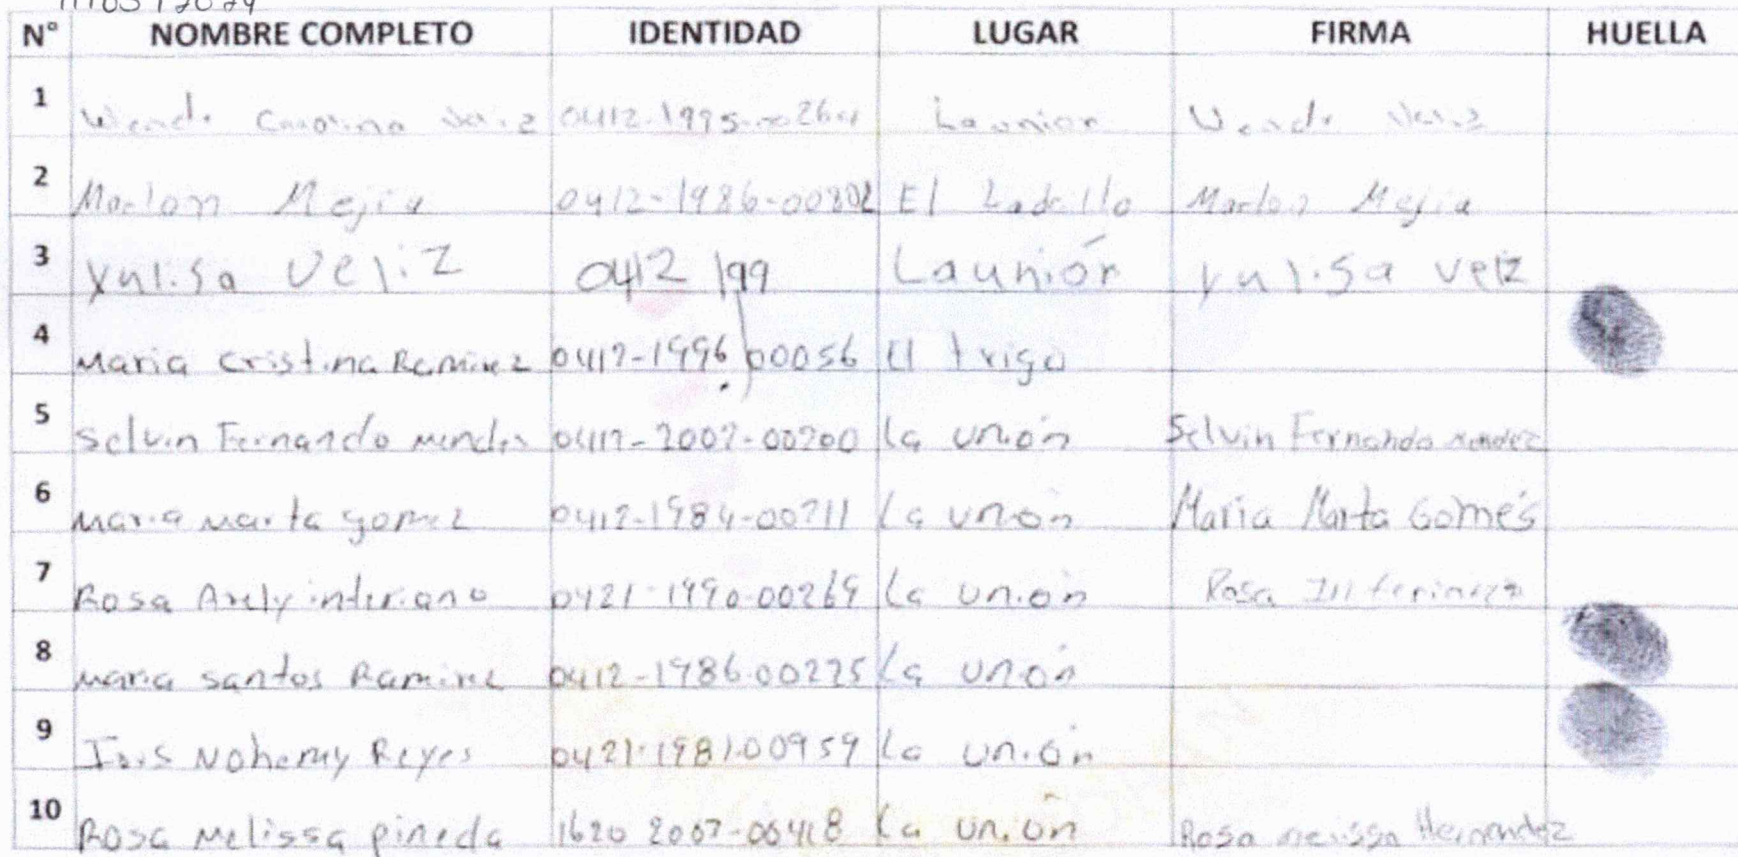 N° NOMBRE COMPLETO IDENTIDAD LUGAR FIRMA HUELLA
1 Carolina Launion
2 Marlon Mejia 0412-1986-00802 El Marlon Mejia
3 Yulisa Veliz 0412 199 Launiór Yulisa Veliz
4 Maria Cristina Ramirez 0412-1996 00056 El trigo
5 Selvin Fernando Mendes 0412-2002-00200 La unión Selvin Fernando Mendez
6 Maria Marta Gomez 0412-1984-00211 La unión Maria Marta Gomés
7 Rosa Arely interiano 0421-1990-00269 La unión Rosa
8 Maria Santos Ramirez 0412-1986-00275 La unión
9 Iris Nohemy Reyes 0421-1981-00959 La unión
10 Rosa Melissa pineda 1620 2007-00418 La unión Rosa Melissa Hernandez